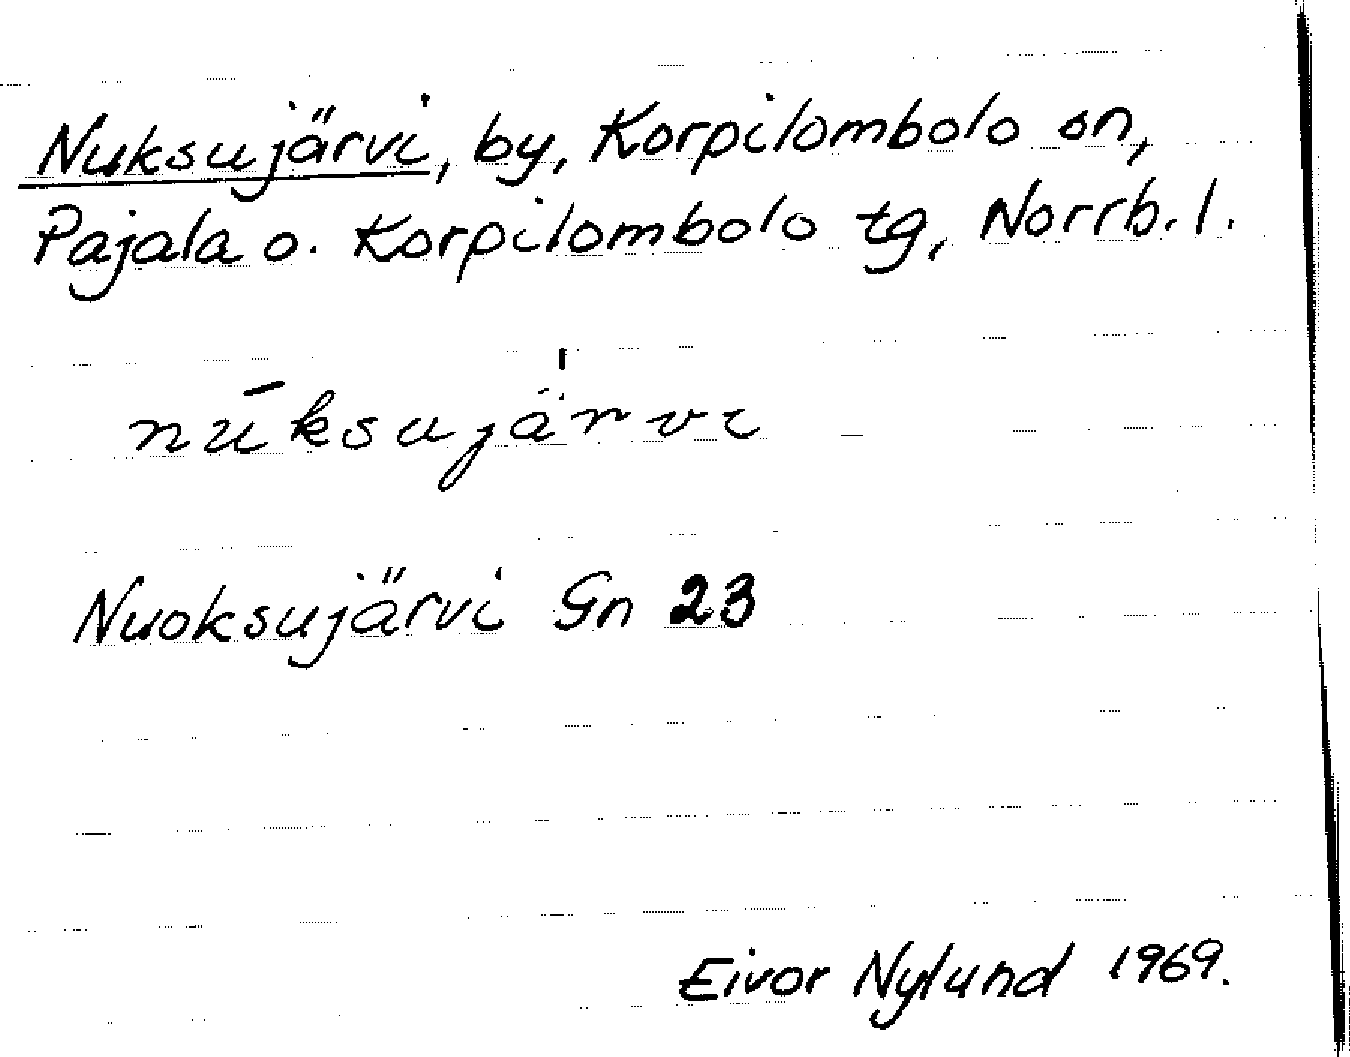 Nuksujärvi, by, Korpilombolo sn,
Pajala o. Korpilombolo tg, Norrb. l.
nūksujä̍rvi
Nuoksujärvi Gn 23
Eivor Nylund 1969.